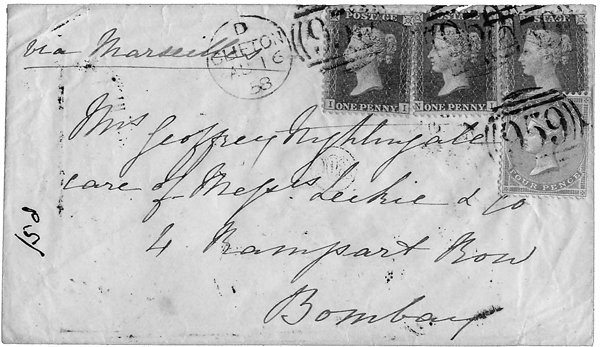 via Marseilles
D
CLIFTON
AU 16
58
POSTAGE
POSTAGE
STAGE
ONE PENNY
ONE PENNY
959
FOUR PENCE
Mrs Geoffrey Nightingale
care of Messrs Leckie & Co
4 Rampart Row
Bombay